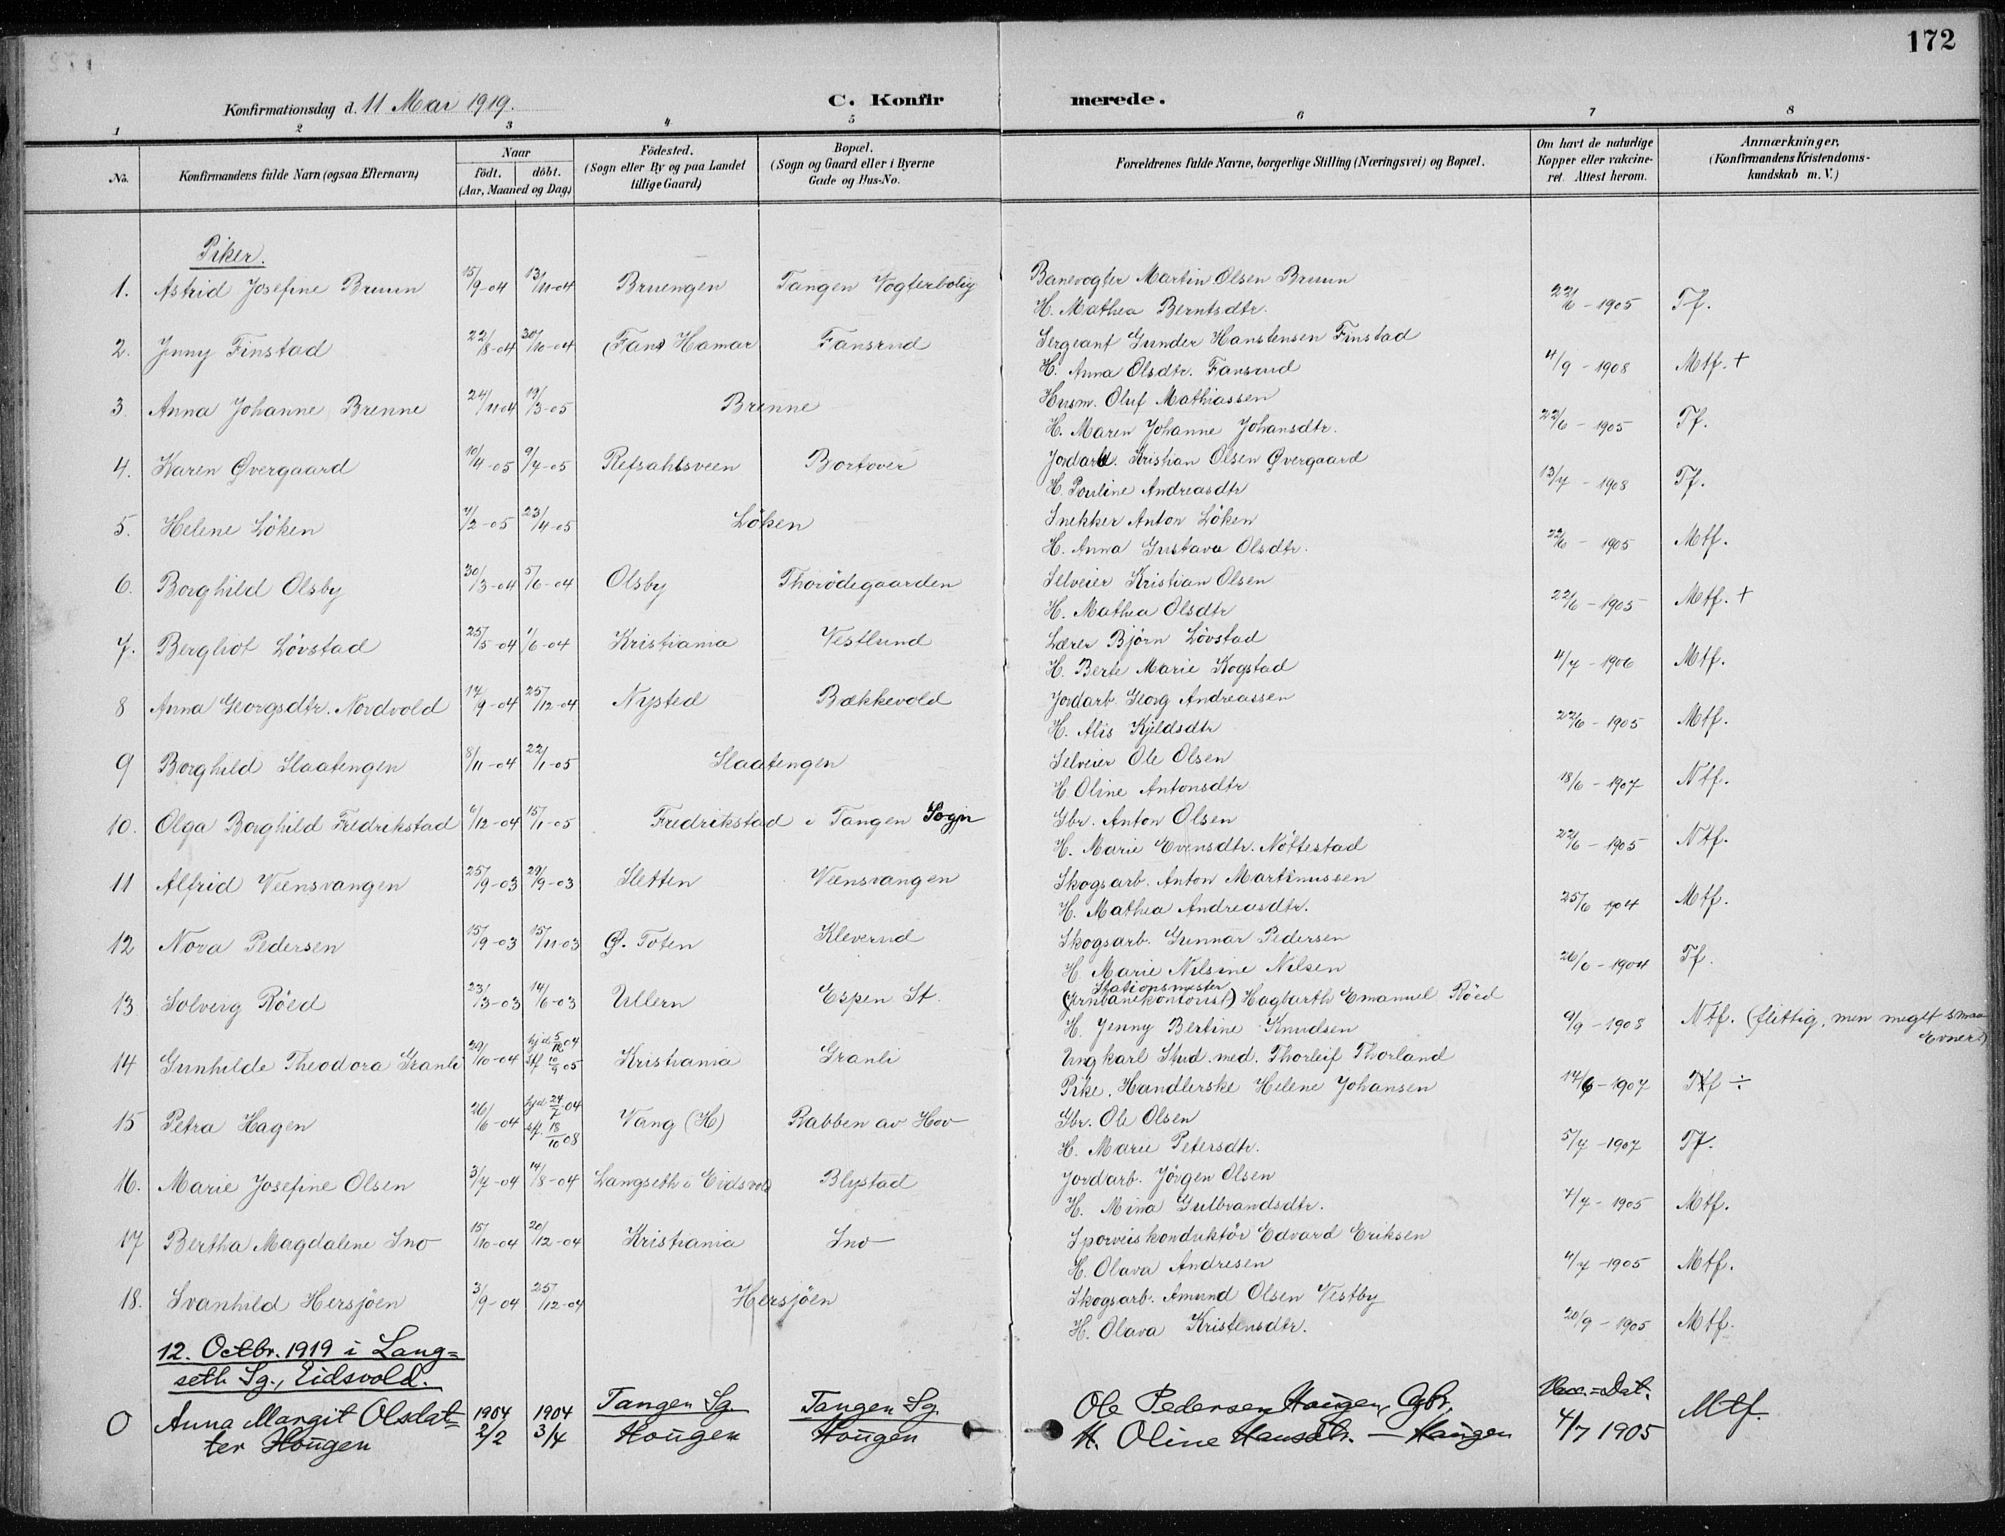 172
Konfirmationsdag d. 11 Mai 1919.
C. Konfirmerede.
1 2 3 4 5 6 7 8
No. Konfirmandens fulde Navn (ogsaa Efternavn) Naar födt. döbt. (Aar, Maaned og Dag) Födested. (Sogn eller By og paa Landet tillige Gaard) Bopæl. (Sogn og Gaard eller i Byerne Gade og Hus-No. Forældrenes fulde Navne, borgerlige Stilling (Næringsvei) og Bopæl. Om havt de naturlige Kopper eller vakcineret. Attest herom. Anmærkninger, (Konfirmandens Kristendomskundskab m. V.)
Piker.
1. Astrid Josefine Bruun 15/9-04 13/11-04 Bruengen Tangen Vogterbolig Banevogter Martin Olsen Bruun
H. Mathea Berntsdtr. 22/6 - 1905 Tf.
2. Jenny Finstad 22/8-04 30/10-04 Hamar Fansrud Sergeant Gunder Hanstensen Finstad
H. Anna Olsdtr. Fansrud 4/9 - 1908 Mtf. +
3. Anna Johanne Brenne 24/11-04 19/3-05 Brenne Husm. Oluf Mathiassen
H. Maren Johanne Johansdtr. 22/6 - 1905 Tf.
4. Karen Øvergaard 10/4-05 9/7-05 Refsahlsveen Bortover Jordarb. Kristian Olsen Øvergaard
H. Pouline Andreasdtr 13/7 - 1908 Tf.
5. Helene Löken 4/2-05 23/4-05 Löken Snekker Anton Löken
H. Anna Gustava Olsdtr. 22/6 - 1905 Mtf.
6. Borghild Olsby 30/3-04 5/6-04 Olsby Thorödegaarden Selveier Kristian Olsen
H. Mathea Olsdtr 22/6 - 1905 Mtf. +
7. Bergliot Lövstad 25/5-04 1/6-04 Kristiania Vestlund Lærer Björn Lövstad
H. Berte Marie Kogstad 4/7 - 1906 Mtf.
8 Anna Georgsdtr. Nordvold 14/9-04 25/12-04 Nysted Bækkevold Jordarb. Georg Andreassen
H. Alis Kjeldsdtr 22/6 - 1905 Mtf.
9 Borghild Slaatengen 8/11-04 22/1-05 Slaatengen Selveier Ole Olsen
H Oline Antonsdtr 18/6 - 1907 Ntf.
10. Olga Borghild Fredrikstad 6/12-04 15/1-05 Fredrikstad i Tangen Sogn Gbr. Anton Olsen
H. Marie Evensdtr. Nöttestad 22/6 - 1905 Ntf.
11 Alfrid Veensvangen 25/9-03 29/9-03 Sletten Veensvangen Skogsarb. Anton Martinussen
H. Mathea Andreasdtr. 25/6 1904 Mtf.
12 Nora Pedersen 15/9-03 15/11-03 Ø. Toten Kleverud Skogsarb. Gunnar Pedersen
H Marie Nilsine Nilsen 26/6 - 1904 Tf.
13 Solveig Röed 23/3-03 14/6-03 Ullern Espen St. Stationsmester
(Jernbanekontorist) Hagbarth Emanuel Röed
H. Jenny Bertine Knudsen 9/9 - 1908 Ntf. (flittig, men meget smaa Evner)
14 Gunhilde Theodora Granli 29/10-04 hjd 5/12 04 stf 05 Kristiania Granli Ungkarl Stud. med. Thorleif Thorland
Pike, Handlerske Helene Johansen 14/6-1907 Ttf ÷
15 Petra Hagen 26/6-04 hjd 24/7 04 stf. 18/10 08 Vang (H) Rabben av Hov Gbr. Ole Olsen
H. Marie Petersdtr. 5/7 - 1907 Tf.
16. Marie Josefine Olsen 3/7-04 14/8-04 Langseth i Eidsvold Blystad Jordarb. Jörgen Olsen
H. Mina Gulbrandsdtr. 4/7 - 1905 Mtf.
17 Bertha Magdalene Sno 15/10-04 20/12-04 Kristiania Sno Sporveiskonduktör Edvard Eriksen
H. Olava Andresen 4/7 - 1905 Mtf.
18. Svanhild Hersjöen 3/9-04 25/12-04 Hersjöen Skogsarb. Amund Olsen Vestby
H. Olava Kristensdtr. 20/9 - 1905 Mtf.
12. Octbr. 1919 i Lang=
seth Sg., Eidsvold.
O Anna Margit Olsdat= 1904 1904 Tangen Sg. Tangen Sg. Ole Pedersen Haugen, Gbr. Vacc.=Dat. Mtf.
ter Hougen 2/2 3/4 Hougen Hougen H. Oline Hansdtr. — Haugen 4/7 1905